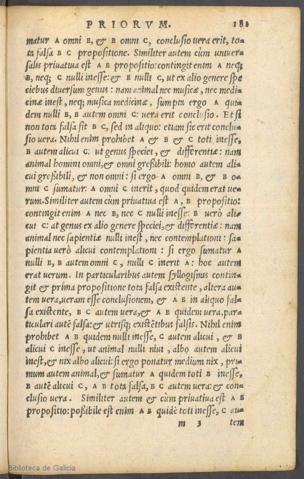 PRIORVM. 181
matur A omni B, & B omni C, conclusio uera erit, to-
ta falsa B C propositione. Similiter autem cùm uniuer
salis priuatiua est A B propositio: contingit enim A neq;
B, neq; C nulli inesse: & B nulli C, ut ex alio genere spe
ciebus diuersum genus: nam animal nec musicæ, nec medi-
cinæ inest, neq; musica medicinæ, sumpto ergo A qui-
dem nulli B, B autem omni C: uera erit conclusio. Et si
non tota falsa sit B C, sed in aliquo: etiam sic erit conclu-
sio uera. Nihil enim prohibet A & B & C toti inesse,
B autem alicui C. ut genus speciei, & differentiæ: nam
animal homini omni, & omni gressibili: homo autem ali-
cui gressibili, & non omni: si ergo A omni B, & B o-
mni C sumatur: A omni C inerit, quod quidem erat ue-
rum. Similiter autem cùm priuatiua est A, B propositio:
contingit enim A nec B, nec C nulli inesse: B uerò ali-
cui C: at genus ex alio genere speciei, & differentiæ: nam
animal nec sapientiæ nulli inest, nec contemplationi: sa-
pientia uerò alicui contemplationi: si ergo sumatur A
nulli B, B autem omni C, nulli C inerit A: hoc autem
erat uerum. In particularibus autem syllogismis contin-
git & prima propositione tota falsa existente, altera au-
tem uera, ueram esse conclusionem, & A B in aliquo fal-
sa existente, B C autem uera, & A B quidem uera, par-
ticulari autè falsa: & utrisq; existẽtibus falsis. Nihil enim
prohibet A B quidem nulli inesse, C autem alicui, & B
alicui C inesse, ut animal nulli niui, albo autem alicui
inest, & nix albo alicui: si ergo ponatur medium nix, pri-
mum autem animal, & sumatur A quidem toti B inesse,
B autẽ alicui C, A B tota falsa, B C autem uera: & con-
clusio uera. Similiter autem & cùm priuatiua est A B
propositio: possibile est enim A B quidẽ toti inesse, C au-
m 3 tem
Biblioteca de Galicia